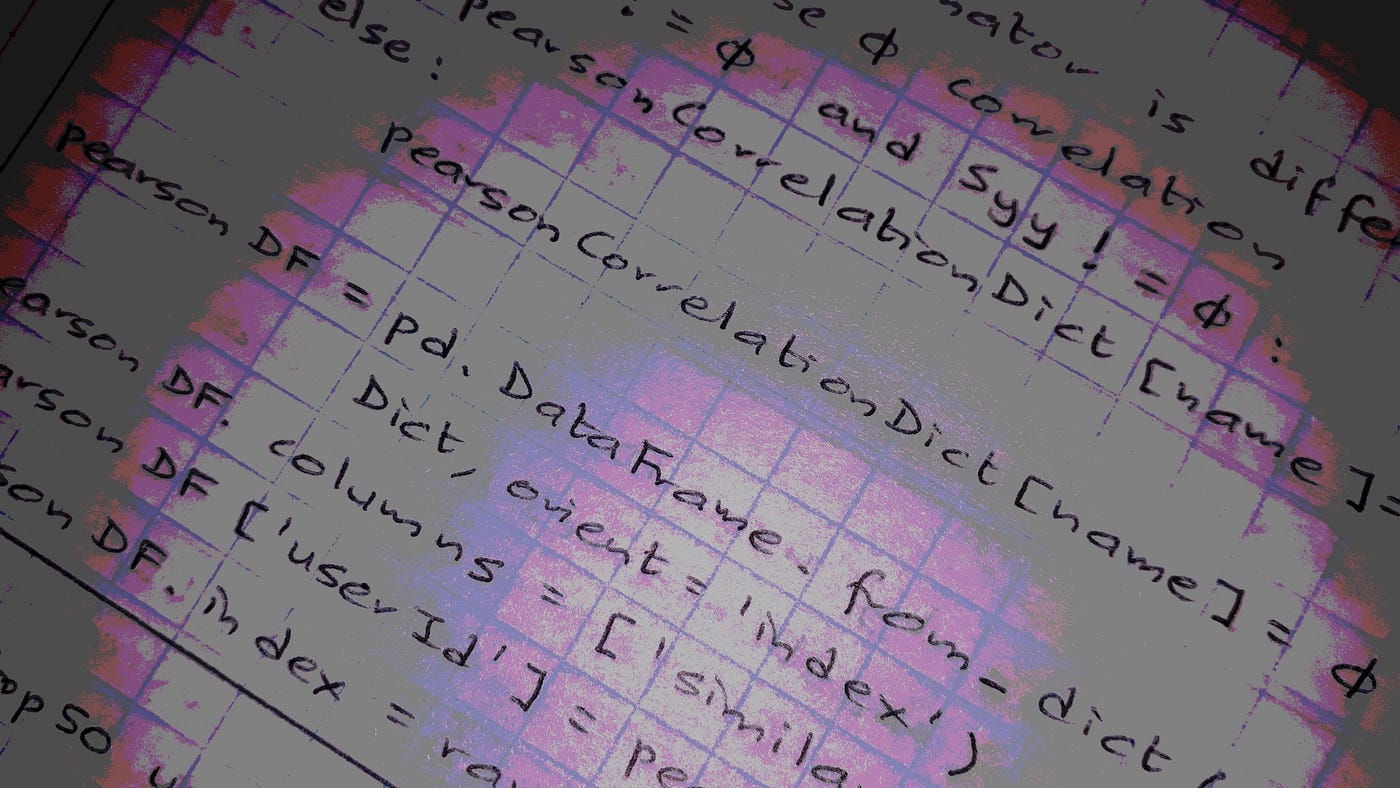 is differe
se ϕ correlation
!= ϕ and Syy != ϕ :
pearsonCorrelationDict [name]=
else :
pearsonCorrelationDict [name] = ϕ
pearson DF = pd. DataFrame. from-dict (
Dict, orient = 'index')
earson DF. columns = ['simila
arson DF ['userId'] = pe
son DF. index = ra
op 50 u